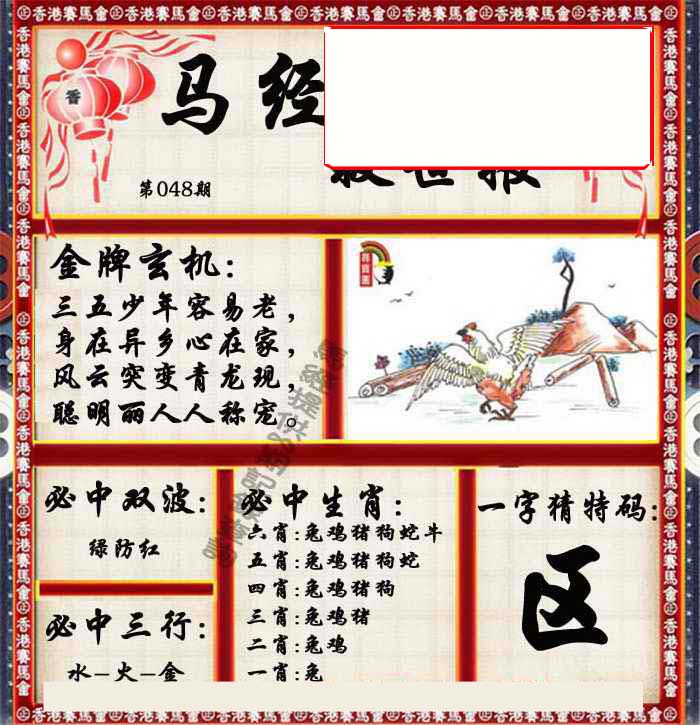 香港賽馬會
香
马经
救世报
第048期
金牌玄机:
三五少年容易老，
身在异乡心在家，
风云突变青龙现，
聪明丽人人称宠。
尋寶圖
必中双波:
绿防红
必中三行:
水-火-金
必中生肖:
六肖:兔鸡猪狗蛇牛
五肖:兔鸡猪狗蛇
四肖:兔鸡猪狗
三肖:兔鸡猪
二肖:兔鸡
一肖:兔
一字猜特码:
区